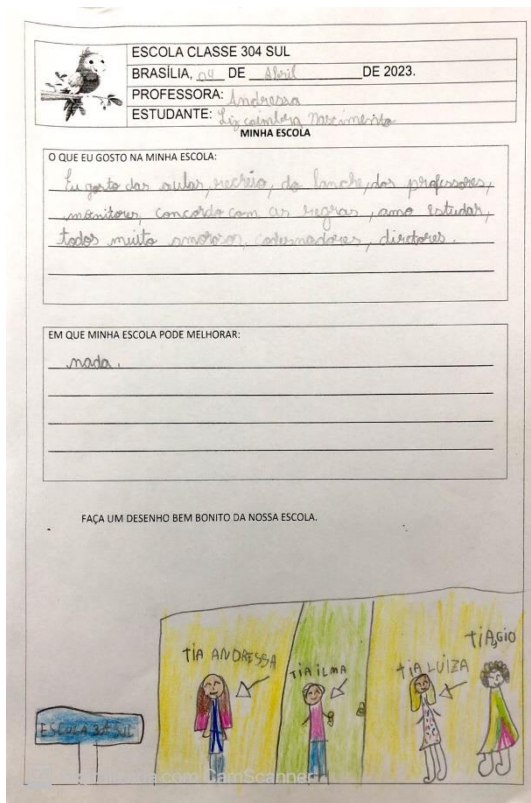 ESCOLA CLASSE 304 SUL
BRASÍLIA, 04 DE Abril DE 2023.
PROFESSORA: Andressa
ESTUDANTE: Liz coimbra Nascimento
MINHA ESCOLA
O QUE EU GOSTO NA MINHA ESCOLA:
Eu gosto das aulas, recreio, do lanche, dos professores,
monitores, concordo com as regras, amo estudar,
todos muito amorosos, cordenadores, diretores.
EM QUE MINHA ESCOLA PODE MELHORAR:
nada.
FAÇA UM DESENHO BEM BONITO DA NOSSA ESCOLA.
TIA GIO
TIA ANDRESSA
TIA ILMA
TIA LUIZA
ESCOLA SUL
CamScanner